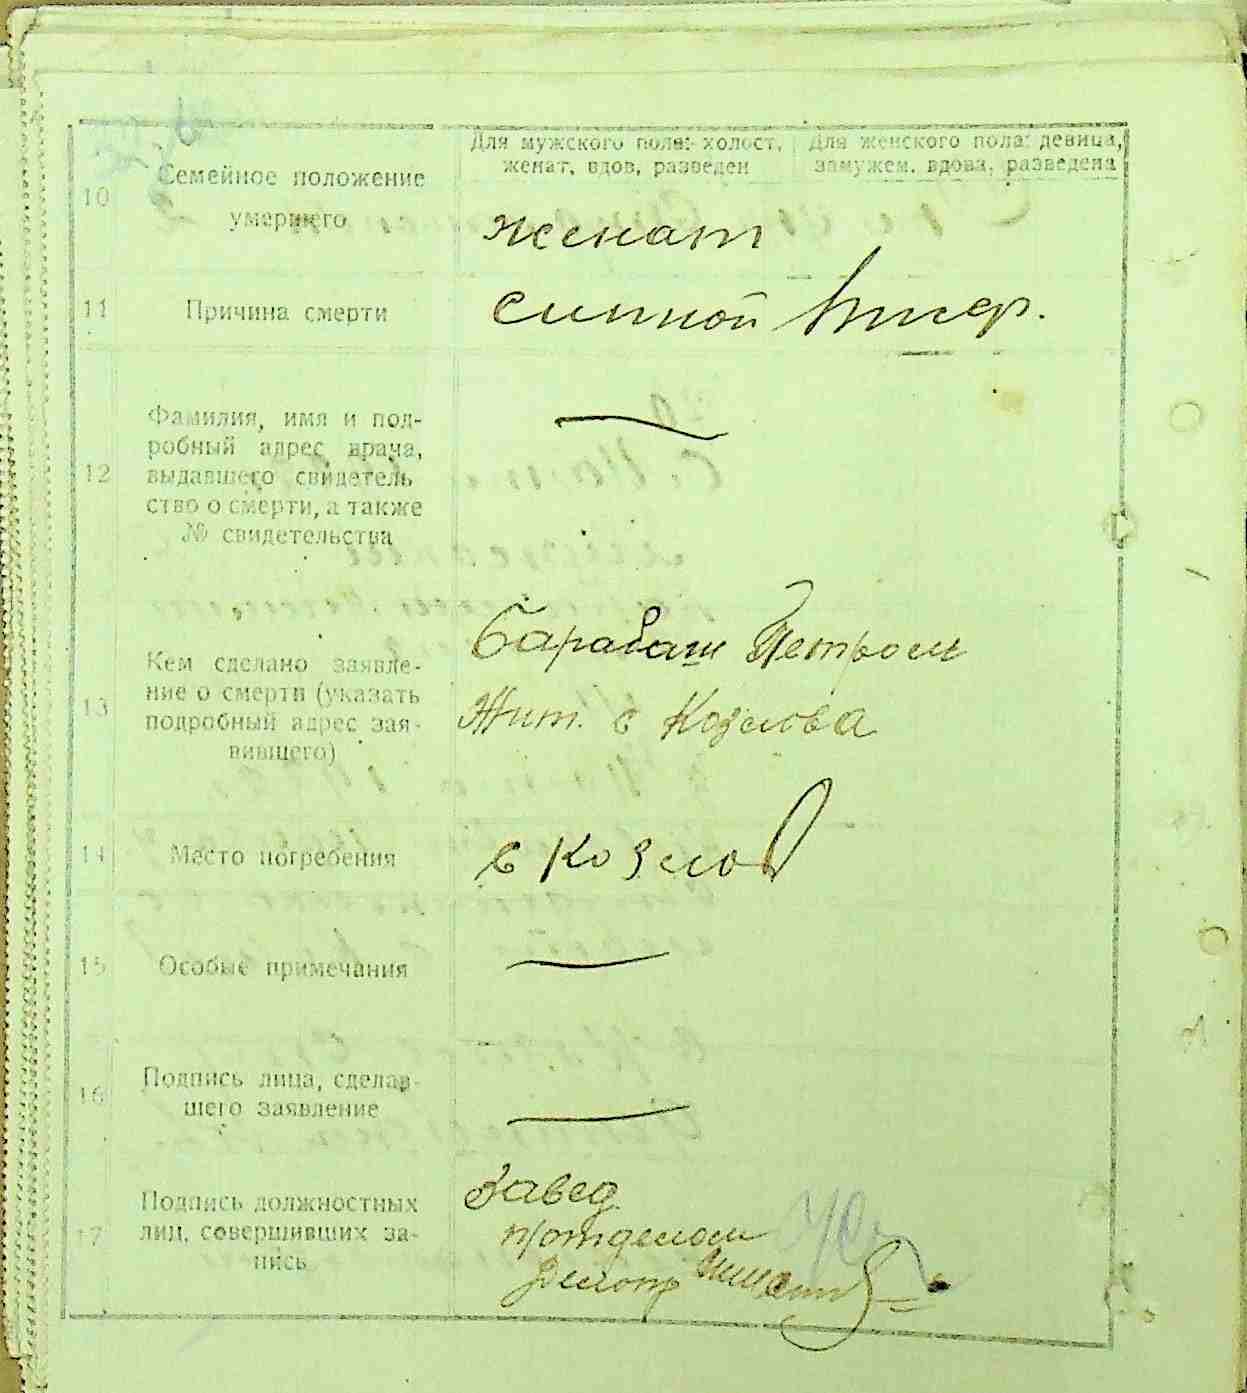 Для мужского пола: холост, женат, вдов, разведен
Для женского пола: девица, замужем, вдова, разведена
10
Семейное положение
умершего
женат
11
Причина смерти
сыпной тиф.
12
Фамилия, имя и под-
робный адрес врача,
выдавшего свидетель
ство о смерти, а также
№ свидетельства
13
Кем сделано заявле-
ние о смерти (указать
подробный адрес зая-
вившего)
Барабаш Петром
Жит. с Козлова
14
Место погребения
с Козлов
15
Особые примечания
16
Подпись лица, сделав-
шего заявление
17
Подпись должностных
лиц, совершивших за-
пись
Завед.
п/отделом
Делопр